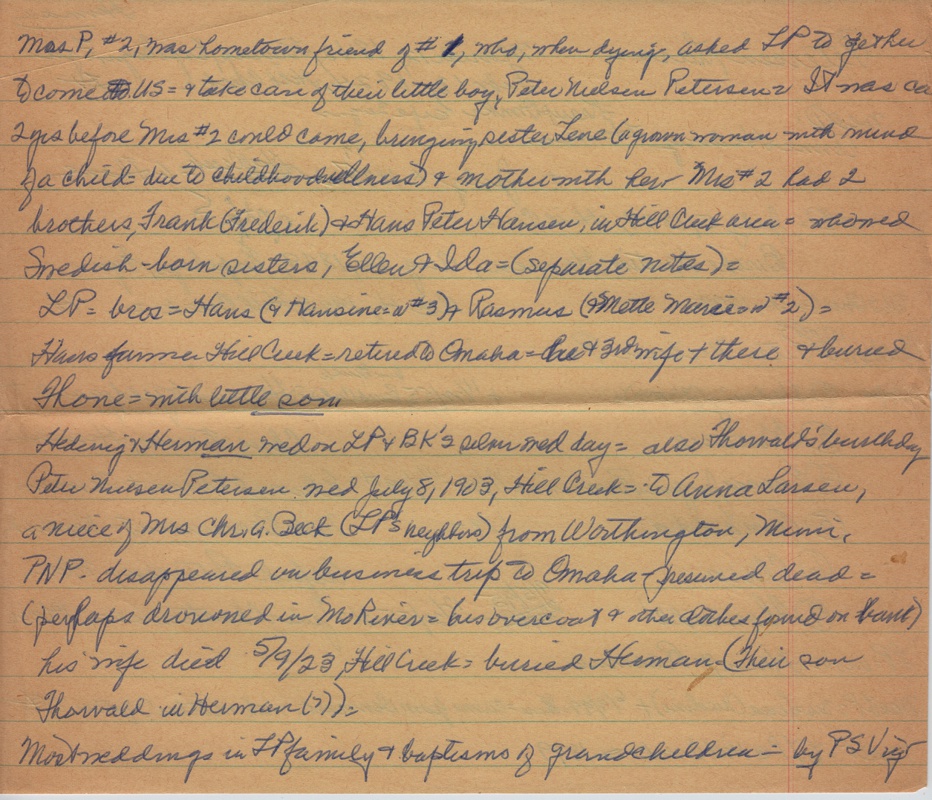 Mrs P, #2, was hometown friend of #1, who, when dying, asked LP to get her
to come to US = & take care of their little boy, Peter Nielsen Petersen = It was ca
2 yrs before Mrs #2 could come, bringing sister Lene (a grown woman with mind
of a child = due to childhood illness) & mother with her Mrs #2 had 2
brothers, Frank (Frederik) & Hans Peter Hansen, in Hill Creek area = who wed
Swedish-born sisters, Ellen & Ida = (separate notes) =
LP = bros = Hans (& Hansine = w #3) & Rasmus (& Mette Marie = w #2) =
Hans farmer Hill Creek = retired to Omaha = he & 3rd wife + there & buried
Thone = with little son
Hedevig & Herman wed on LP & BK's silver wed day = also Thorvald's birthday
Peter Nielsen Petersen wed July 8, 1903, Hill Creek = to Anna Larsen,
a niece of Mrs Chr. A. Beck (LP's neighbors) from Worthington, Minn.
PNP - disappeared on business trip to Omaha - (presumed dead =
(perhaps drowned in Mo River = his overcoat & other clothes found on bank)
his wife died 5/9/23, Hill Creek = buried Herman (Their son
Thorvald in Herman (?)) =
Most weddings in LP family & baptisms of grandchildren = by PS Vig